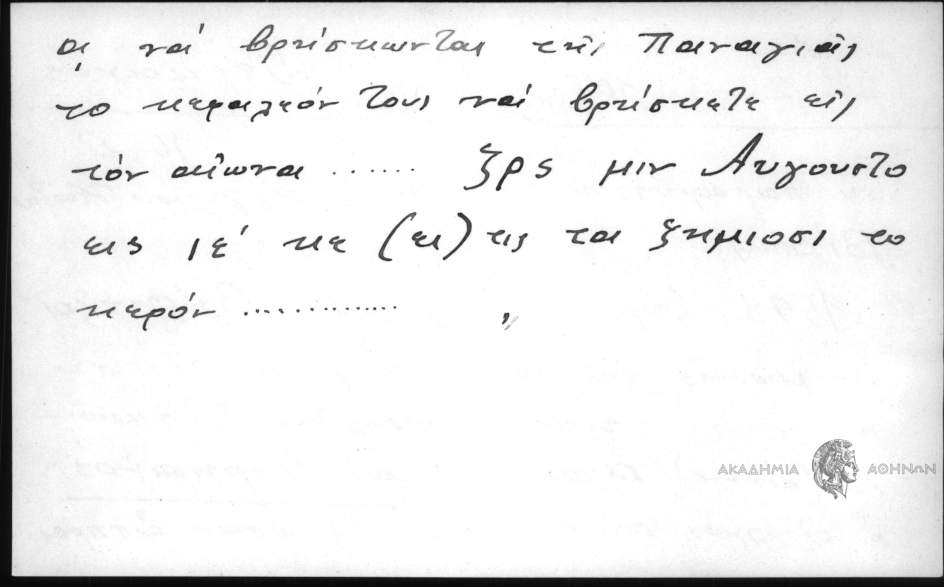 οι νά βρίσκωνται τῆς Παναγιᾶς
τὸ κεφαλεόν τους νά βρίσκετε εἰς
τόν αἰῶνα ...... ζρς μιν Αυγουστο
εις ιε' κε (ει) τις τα ζημιοσι το
κερόν .............. ,,
ΑΚΑΔΗΜΙΑ ΑΘΗΝΩΝ